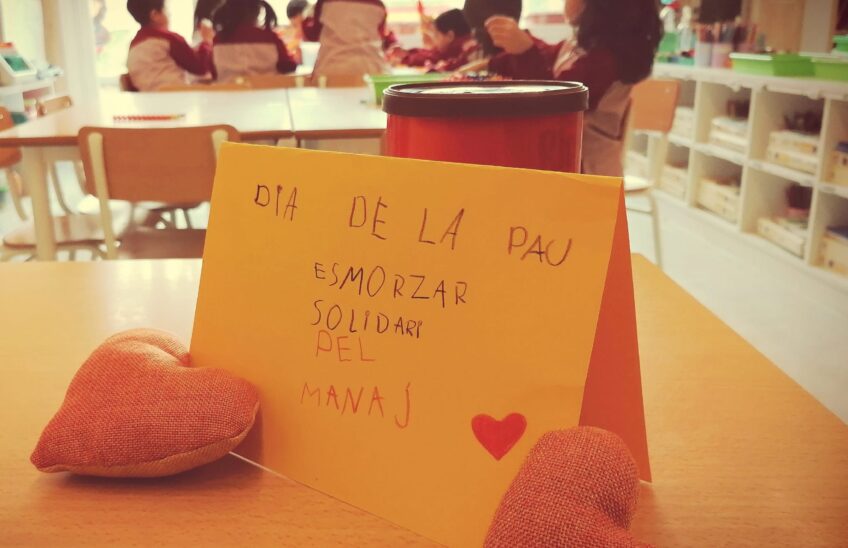 DIA DE LA PAU
ESMORZAR
SOLIDARI
PEL
MANAJ